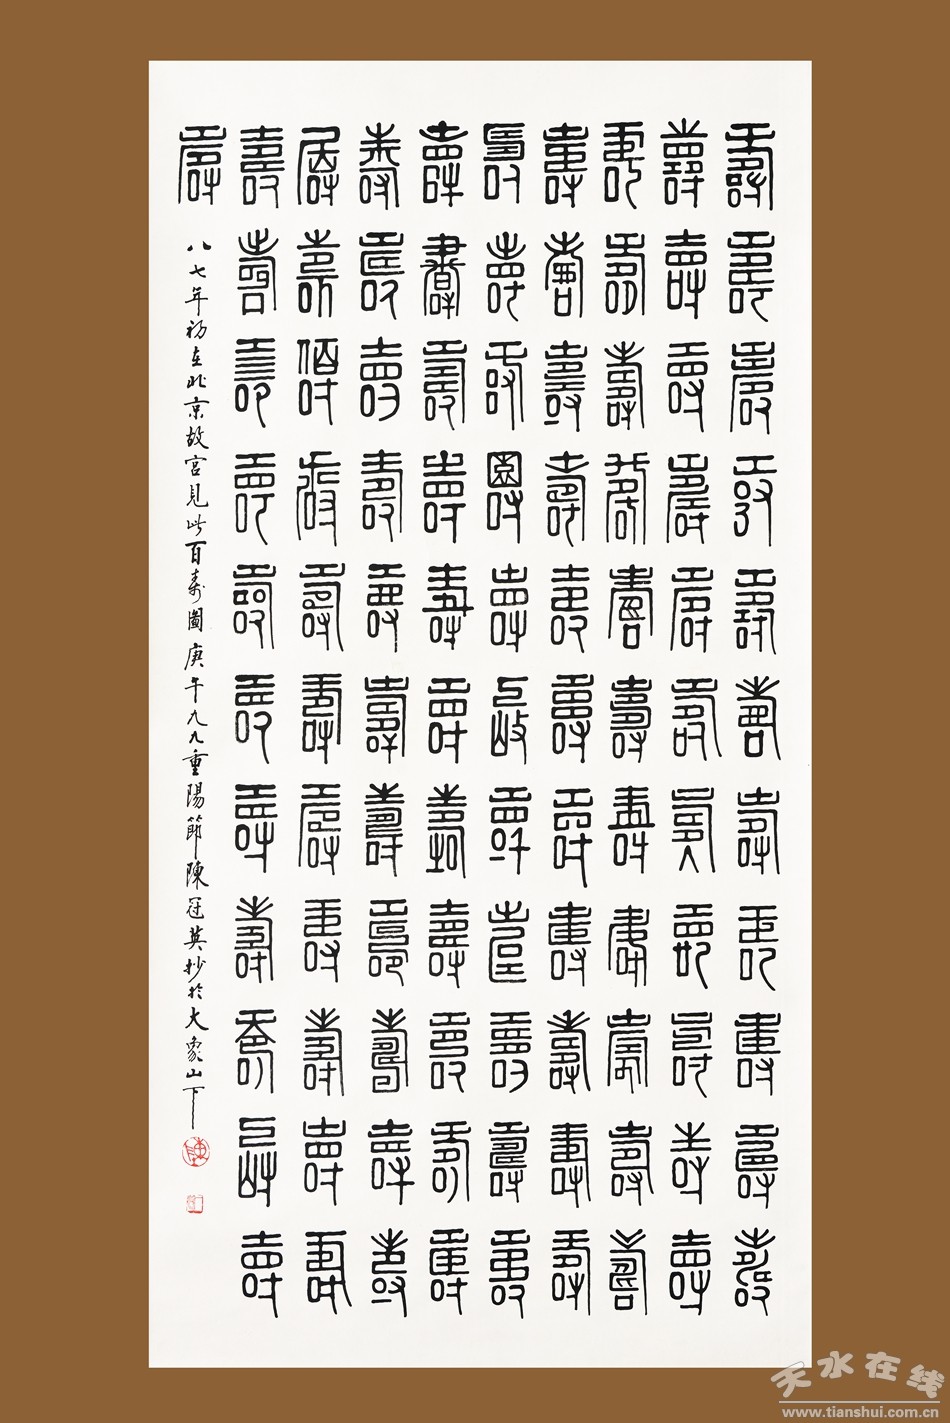 壽壽壽壽壽壽壽壽壽壽壽
壽壽壽壽壽壽壽壽壽壽壽
壽壽壽壽壽壽壽壽壽壽壽
壽壽壽壽壽壽壽壽壽壽壽
壽壽壽壽壽壽壽壽壽壽壽
壽壽壽壽壽壽壽壽壽壽壽
壽壽壽壽壽壽壽壽壽壽壽
壽壽壽壽壽壽壽壽壽壽壽
壽壽壽壽壽壽壽壽壽壽壽
壽
八七年初在北京故宮見此百壽圖庚午九九重陽節陳冠英抄於大象山下
天水在线
www.tianshui.com.cn